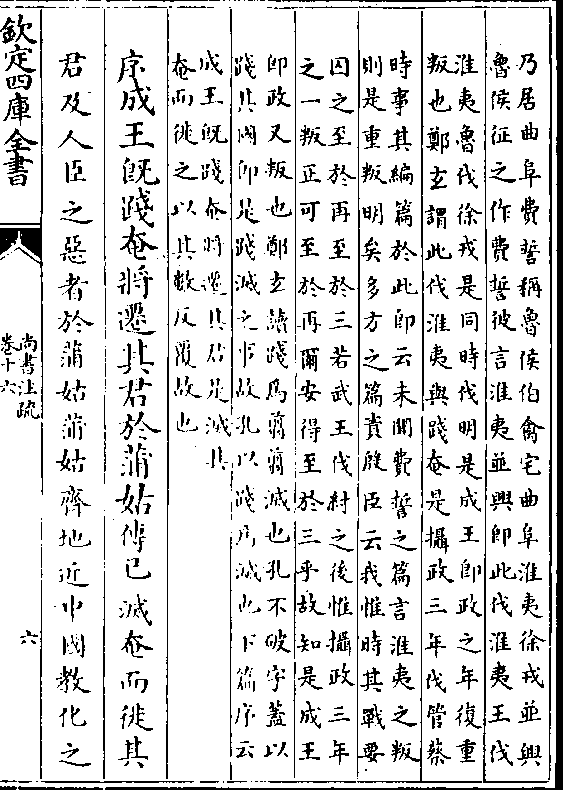 乃居曲阜費誓稱魯侯伯禽宅曲阜淮夷徐戎並興
魯侯征之作費誓彼言淮夷並興即此伐淮夷王伐
淮夷魯伐徐戎是同時伐明是成王即政之年復重
叛也鄭玄謂此伐淮夷與踐奄是攝政三年伐管蔡
時事其編篇於此即云未聞費誓之篇言淮夷之叛
則是重叛明矣多方之篇責殷臣云我惟時其戰要
囚之至於再至於三若武王伐紂之後惟攝政三年
之一叛正可至於再爾安得至於三乎故知是成王
即政又叛也鄭玄讀踐為翦翦滅也孔不破字蓋以
踐其國即是踐滅之事故孔以踐為滅也下篇序云
成王既踐奄將遷其君是滅其
奄而徙之以其數反覆故也
序成王既踐奄將遷其君於蒲姑傳已滅奄而徙其
君及人臣之惡者於蒲姑蒲姑齊地近中國教化之
欽定四庫全書
尚書注疏
卷十六
六